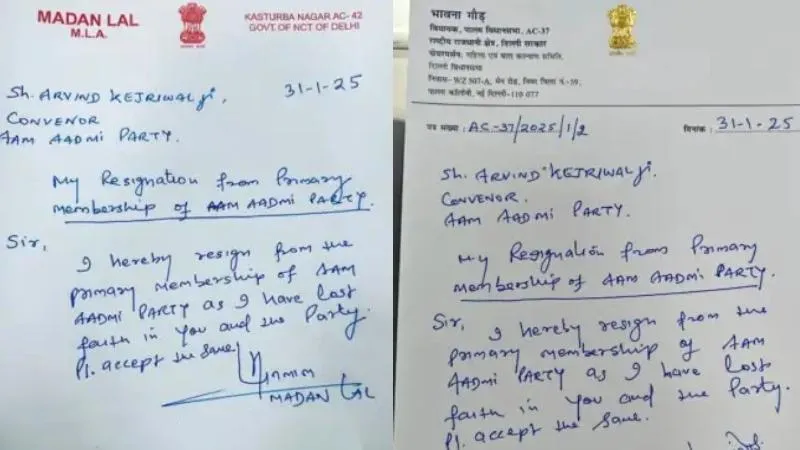 MADAN LAL
M.L.A.
KASTURBA NAGAR AC- 42
GOVT. OF NCT OF DELHI
31-1-25
Sh. ARVIND KEJRIWAL ji,
CONVENOR
AAM AADMI PARTY.
My Resignation from Primary
membership of AAM AADMI PARTY.
Sir,
I hereby resign from the
primary membership of AAM
AADMI PARTY as I have lost
faith in you and the Party.
Pl. accept the same.
MADAN LAL
भावना गौड़
विधायक, पालम विधानसभा, AC-37
राष्ट्रीय राजधानी क्षेत्र, दिल्ली सरकार
चेयरपर्सन: महिला एवं बाल कल्याण समिति,
दिल्ली विधानसभा
निवास:-WZ 507-A, मेन रोड, शिव पिलर नं.-59,
पालम कॉलोनी, नई दिल्ली-110 077
पत्र संख्या : AC-37/2025/1/2
दिनांक : 31-1-25
Sh. ARVIND KEJRIWAL ji.
CONVENOR.
AAM AADMI PARTY.
My Resignation from Primary
membership of AAM AADMI PARTY.
Sir,
I hereby resign from the
primary membership of AAM
AADMI PARTY as I have lost
faith in you and the Party.
Pl. accept the same.